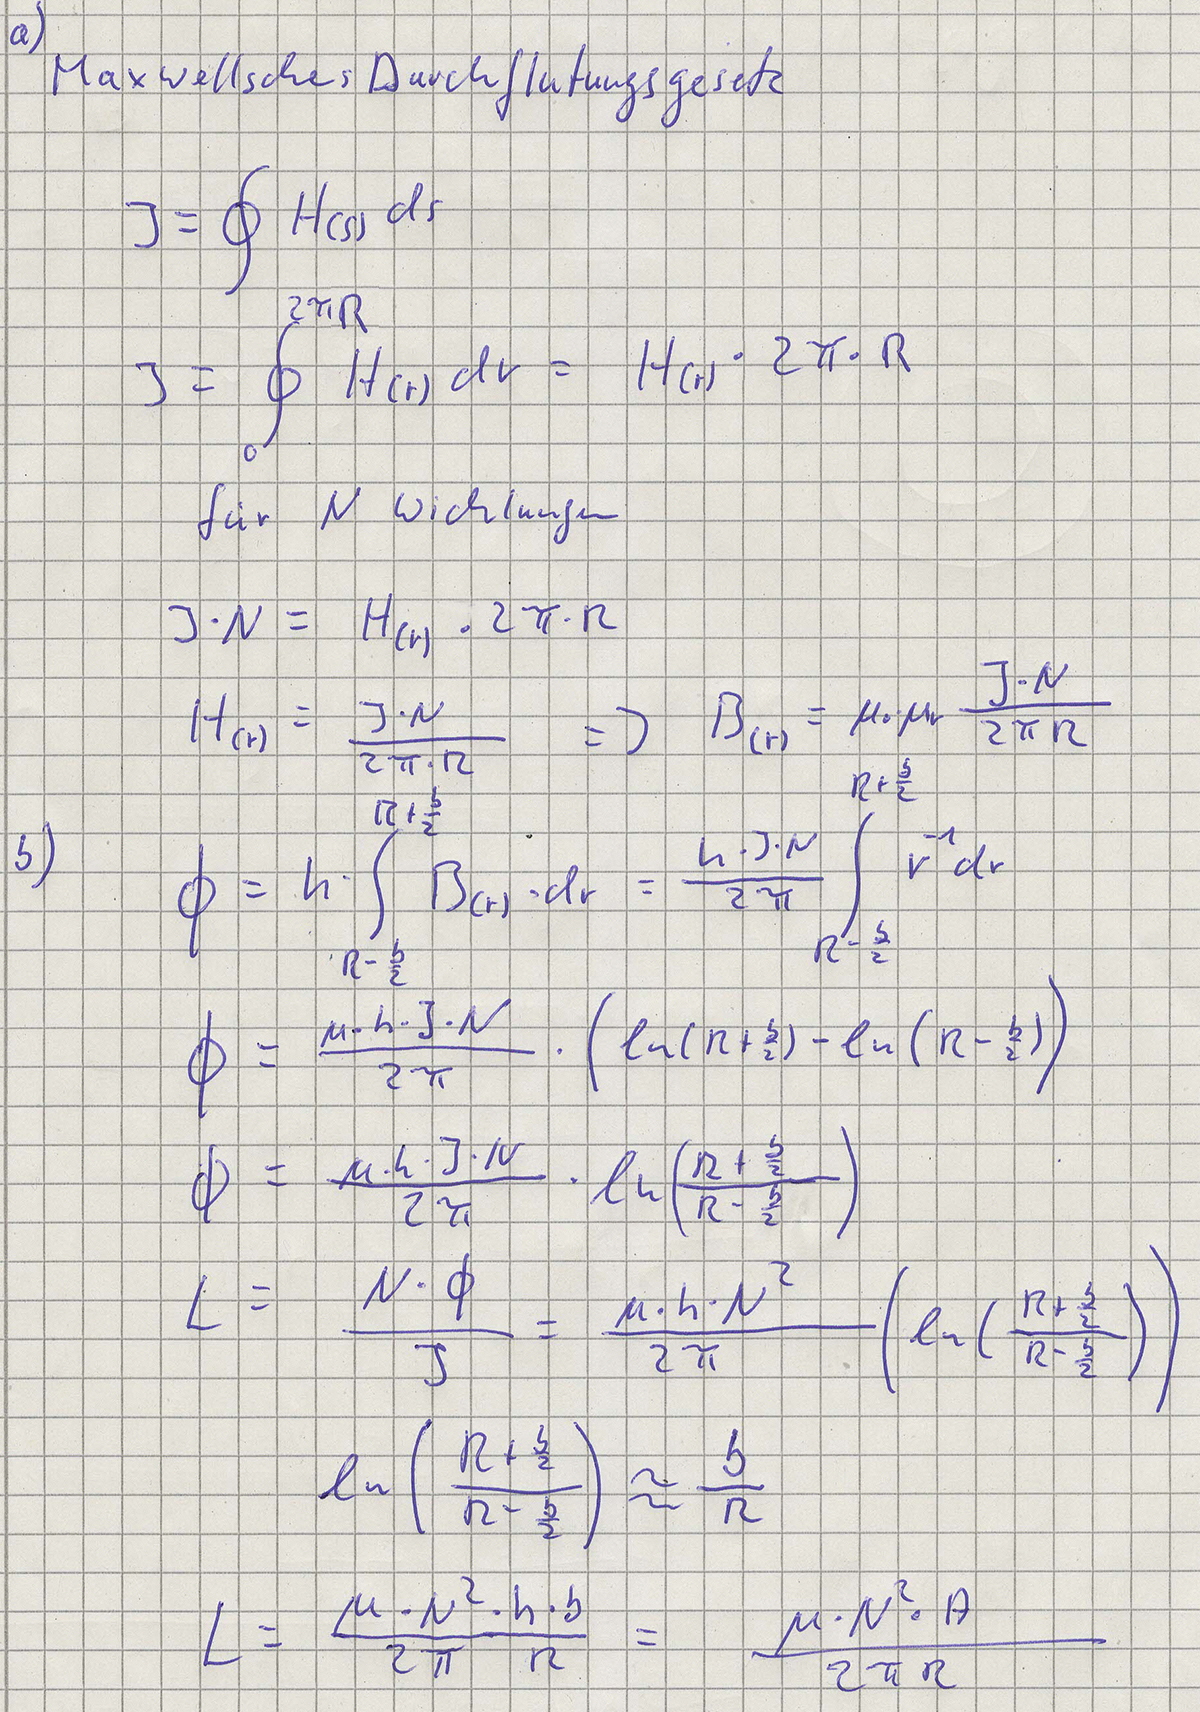 a)
Maxwellsches Durchflutungsgesetz
J = ∮ H(s) ds
J = ∮₀^{2πR} H(r) dr = H(r) · 2π · R
für N Wicklungen
J·N = H(r) · 2π·R
H(r) = J·N / 2π·R => B(r) = μ₀·μr J·N / 2πR
b) ϕ = h · ∫_{R-b/2}^{R+b/2} B(r) · dr = h·J·N / 2π ∫_{R-b/2}^{R+b/2} r⁻¹ dr
ϕ = μ·h·J·N / 2π · (ln(R+b/2) - ln(R-b/2))
ϕ = μ·h·J·N / 2π · ln((R+b/2) / (R-b/2))
L = N·ϕ / J = μ·h·N² / 2π (ln((R+b/2) / (R-b/2)))
ln((R+b/2) / (R-b/2)) ≈ b / R
L = μ·N²·h·b / 2π R = μ·N²·A / 2πR